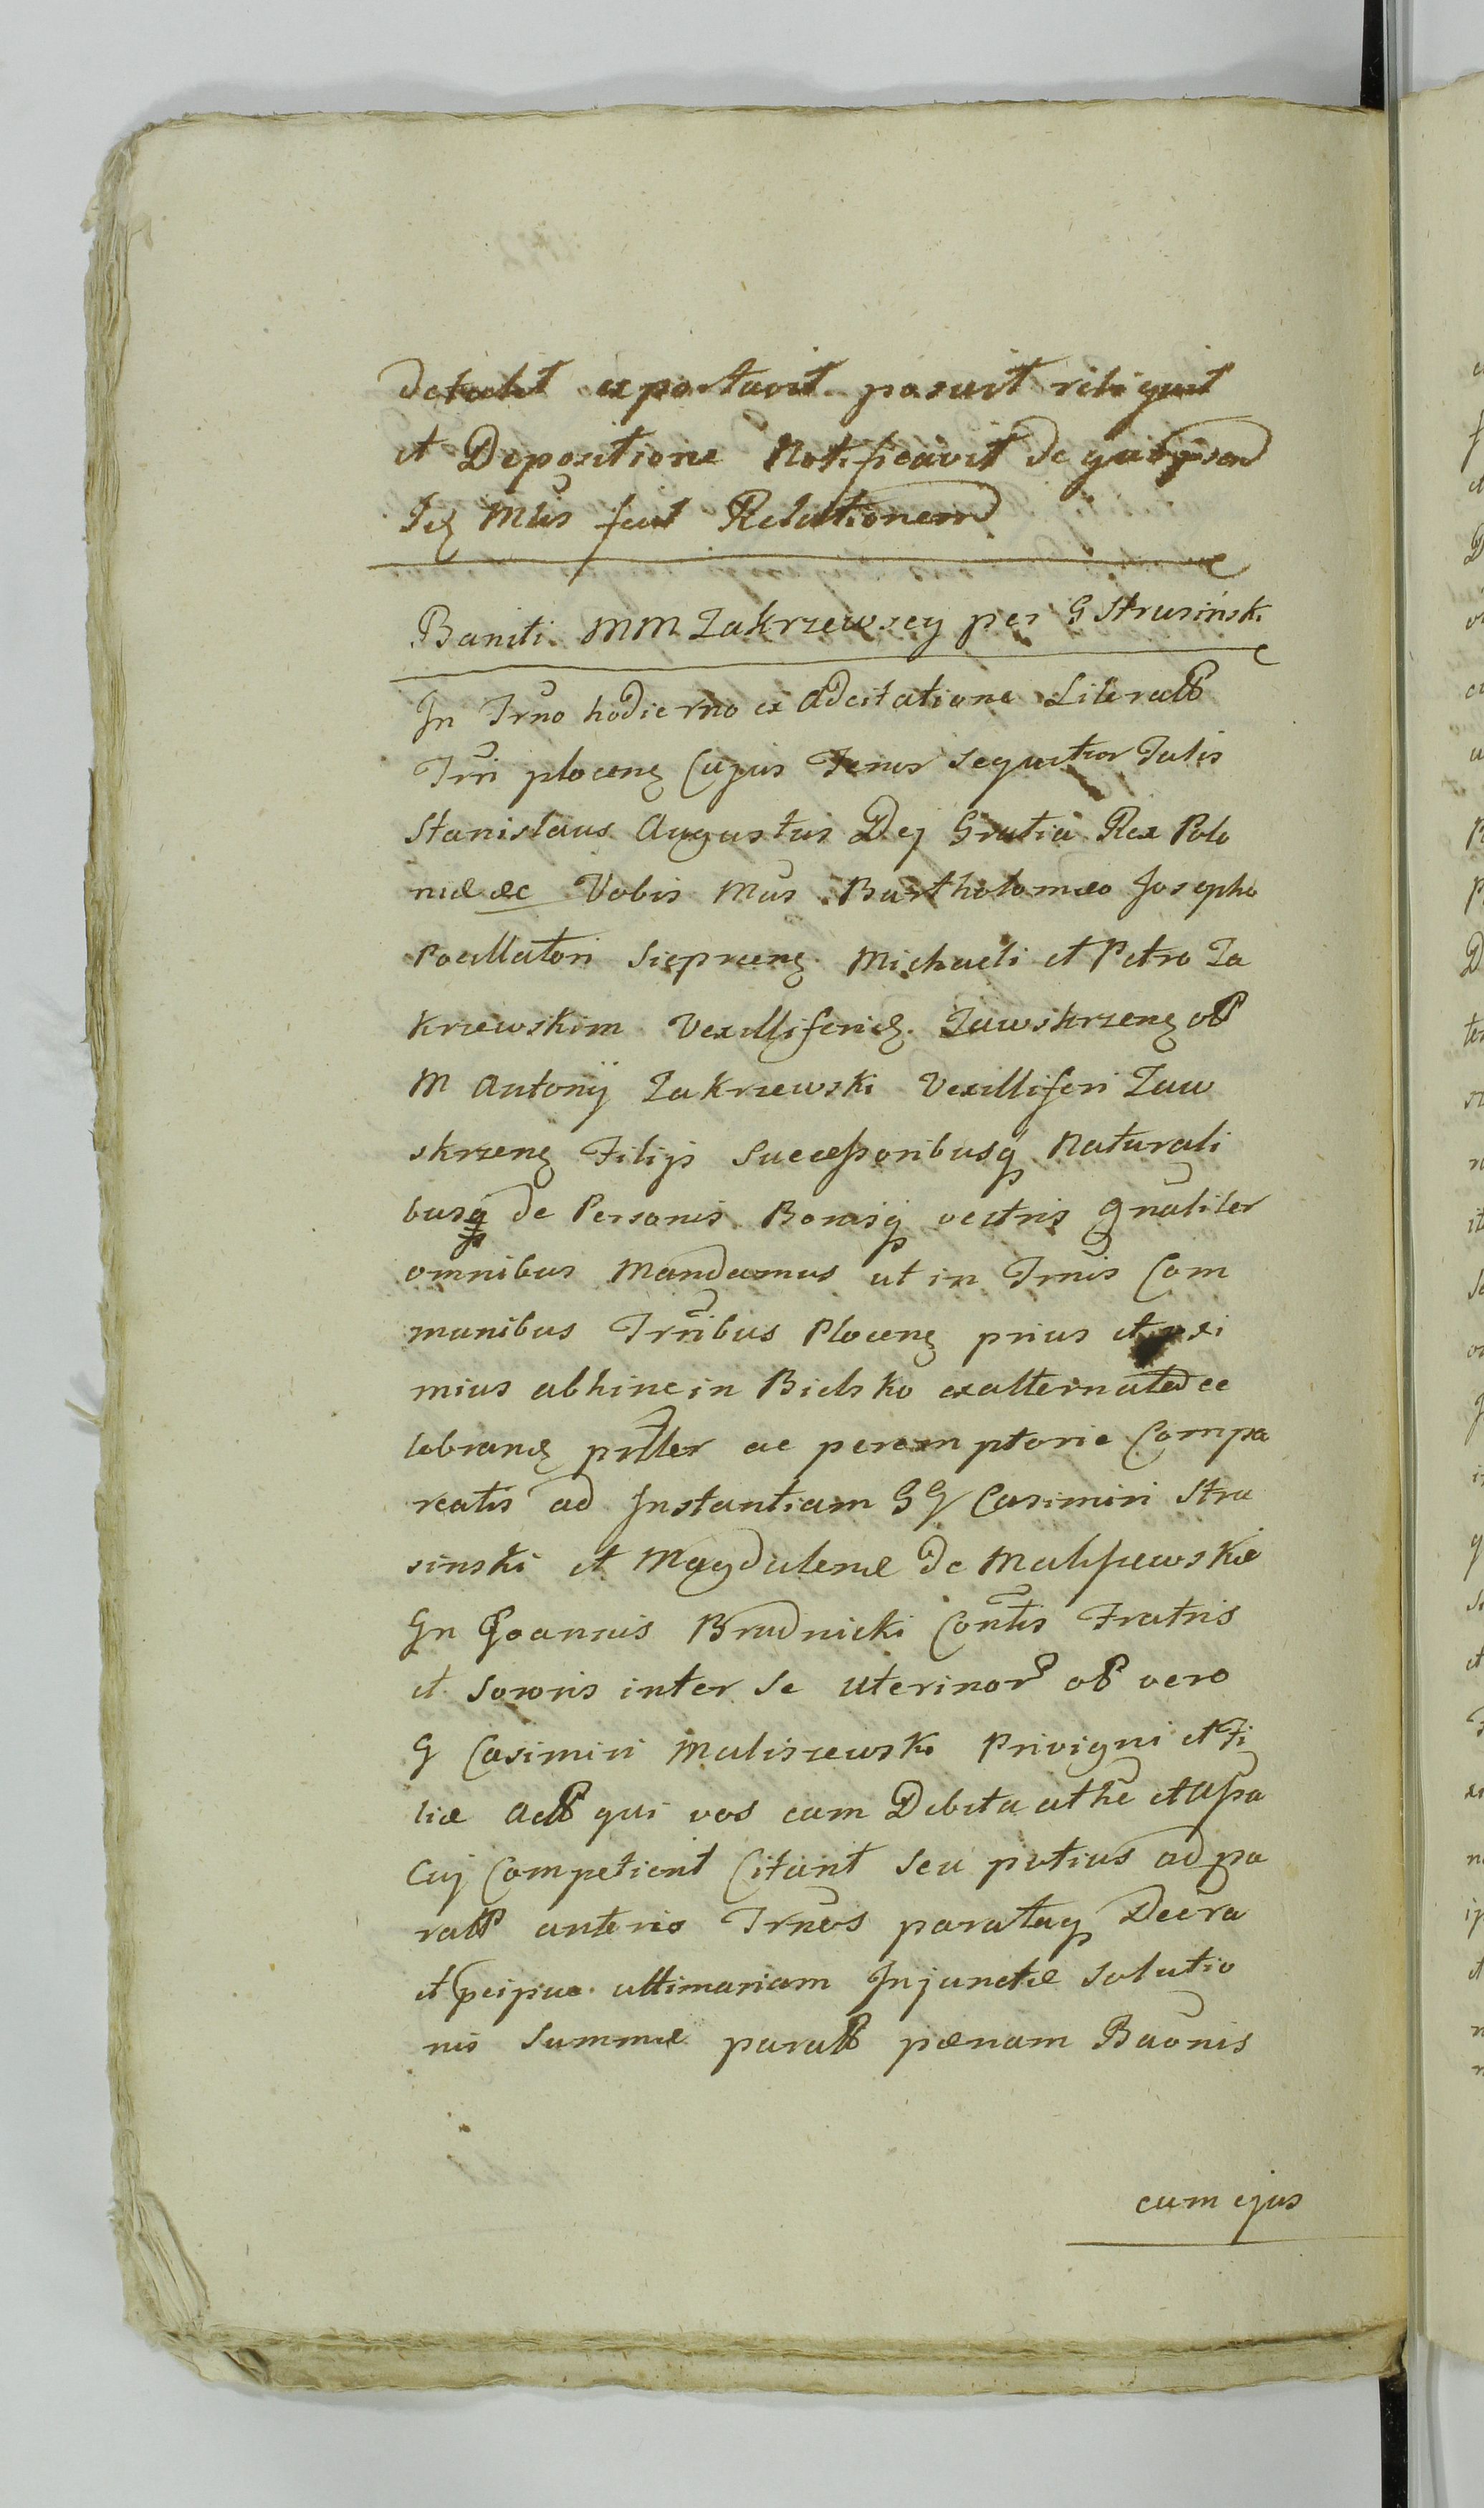 detulit exportavit posuit reliquit
et Depositione Notificavit de
Idē Mtīs fecit Relationem
Baniti MM Zakrzewscy per G Strusiński
In Trno hodierno ex Adcitatione Literali
Trri plocenē Cujus Tenor sequitur Talis
Stanislaus Augustus Dej Gratia Rex Polo
niæ &c Vobis Mūs Bartholomæo Josepho
Pocillatori Sieprcenē Michaeli et Petro Za
krzewskim Vexilliferidē Zawskrzenē olī
M Antonij Zakrzewski Vexilliferi Zaw
skrzenē Filijs Successoribusq Naturali
busq de Personis Bonisq vestris gnāliter
omnibus Mandamus ut in Trnis Com
munibus Trribus Plocenē prius et
mius abhinc in Bielsko exalternata ce
lebrandē pntter ac peremptorie Compa
reatis ad Instantiam GG Casimiri Stru
sinski et Magdalenæ de Maliszewskie
Gn Joannis Brudnicki Contis Fratris
et Sororis inter se Uterinor olī vero
G Casimiri Maliszewski Privigni et Fi
liæ Act qui vos cum Debita athe et Assa
cuj Competierit Citant seu potius ad pa
rati anterio Trneos parataq Decra
et ultimariam Injunctæ Solutio
nis Summæ parati pænam Baōnis
cum ejus